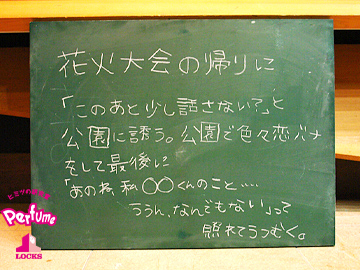 花火大会の帰りに
「このあと少し話さない?」と
公園に誘う。公園で色々恋バナ
をして最後に
「あのね、私〇〇くんのこと‥‥
ううん、なんでもない」って
照れてうつむく。
Perfume
LOCKS